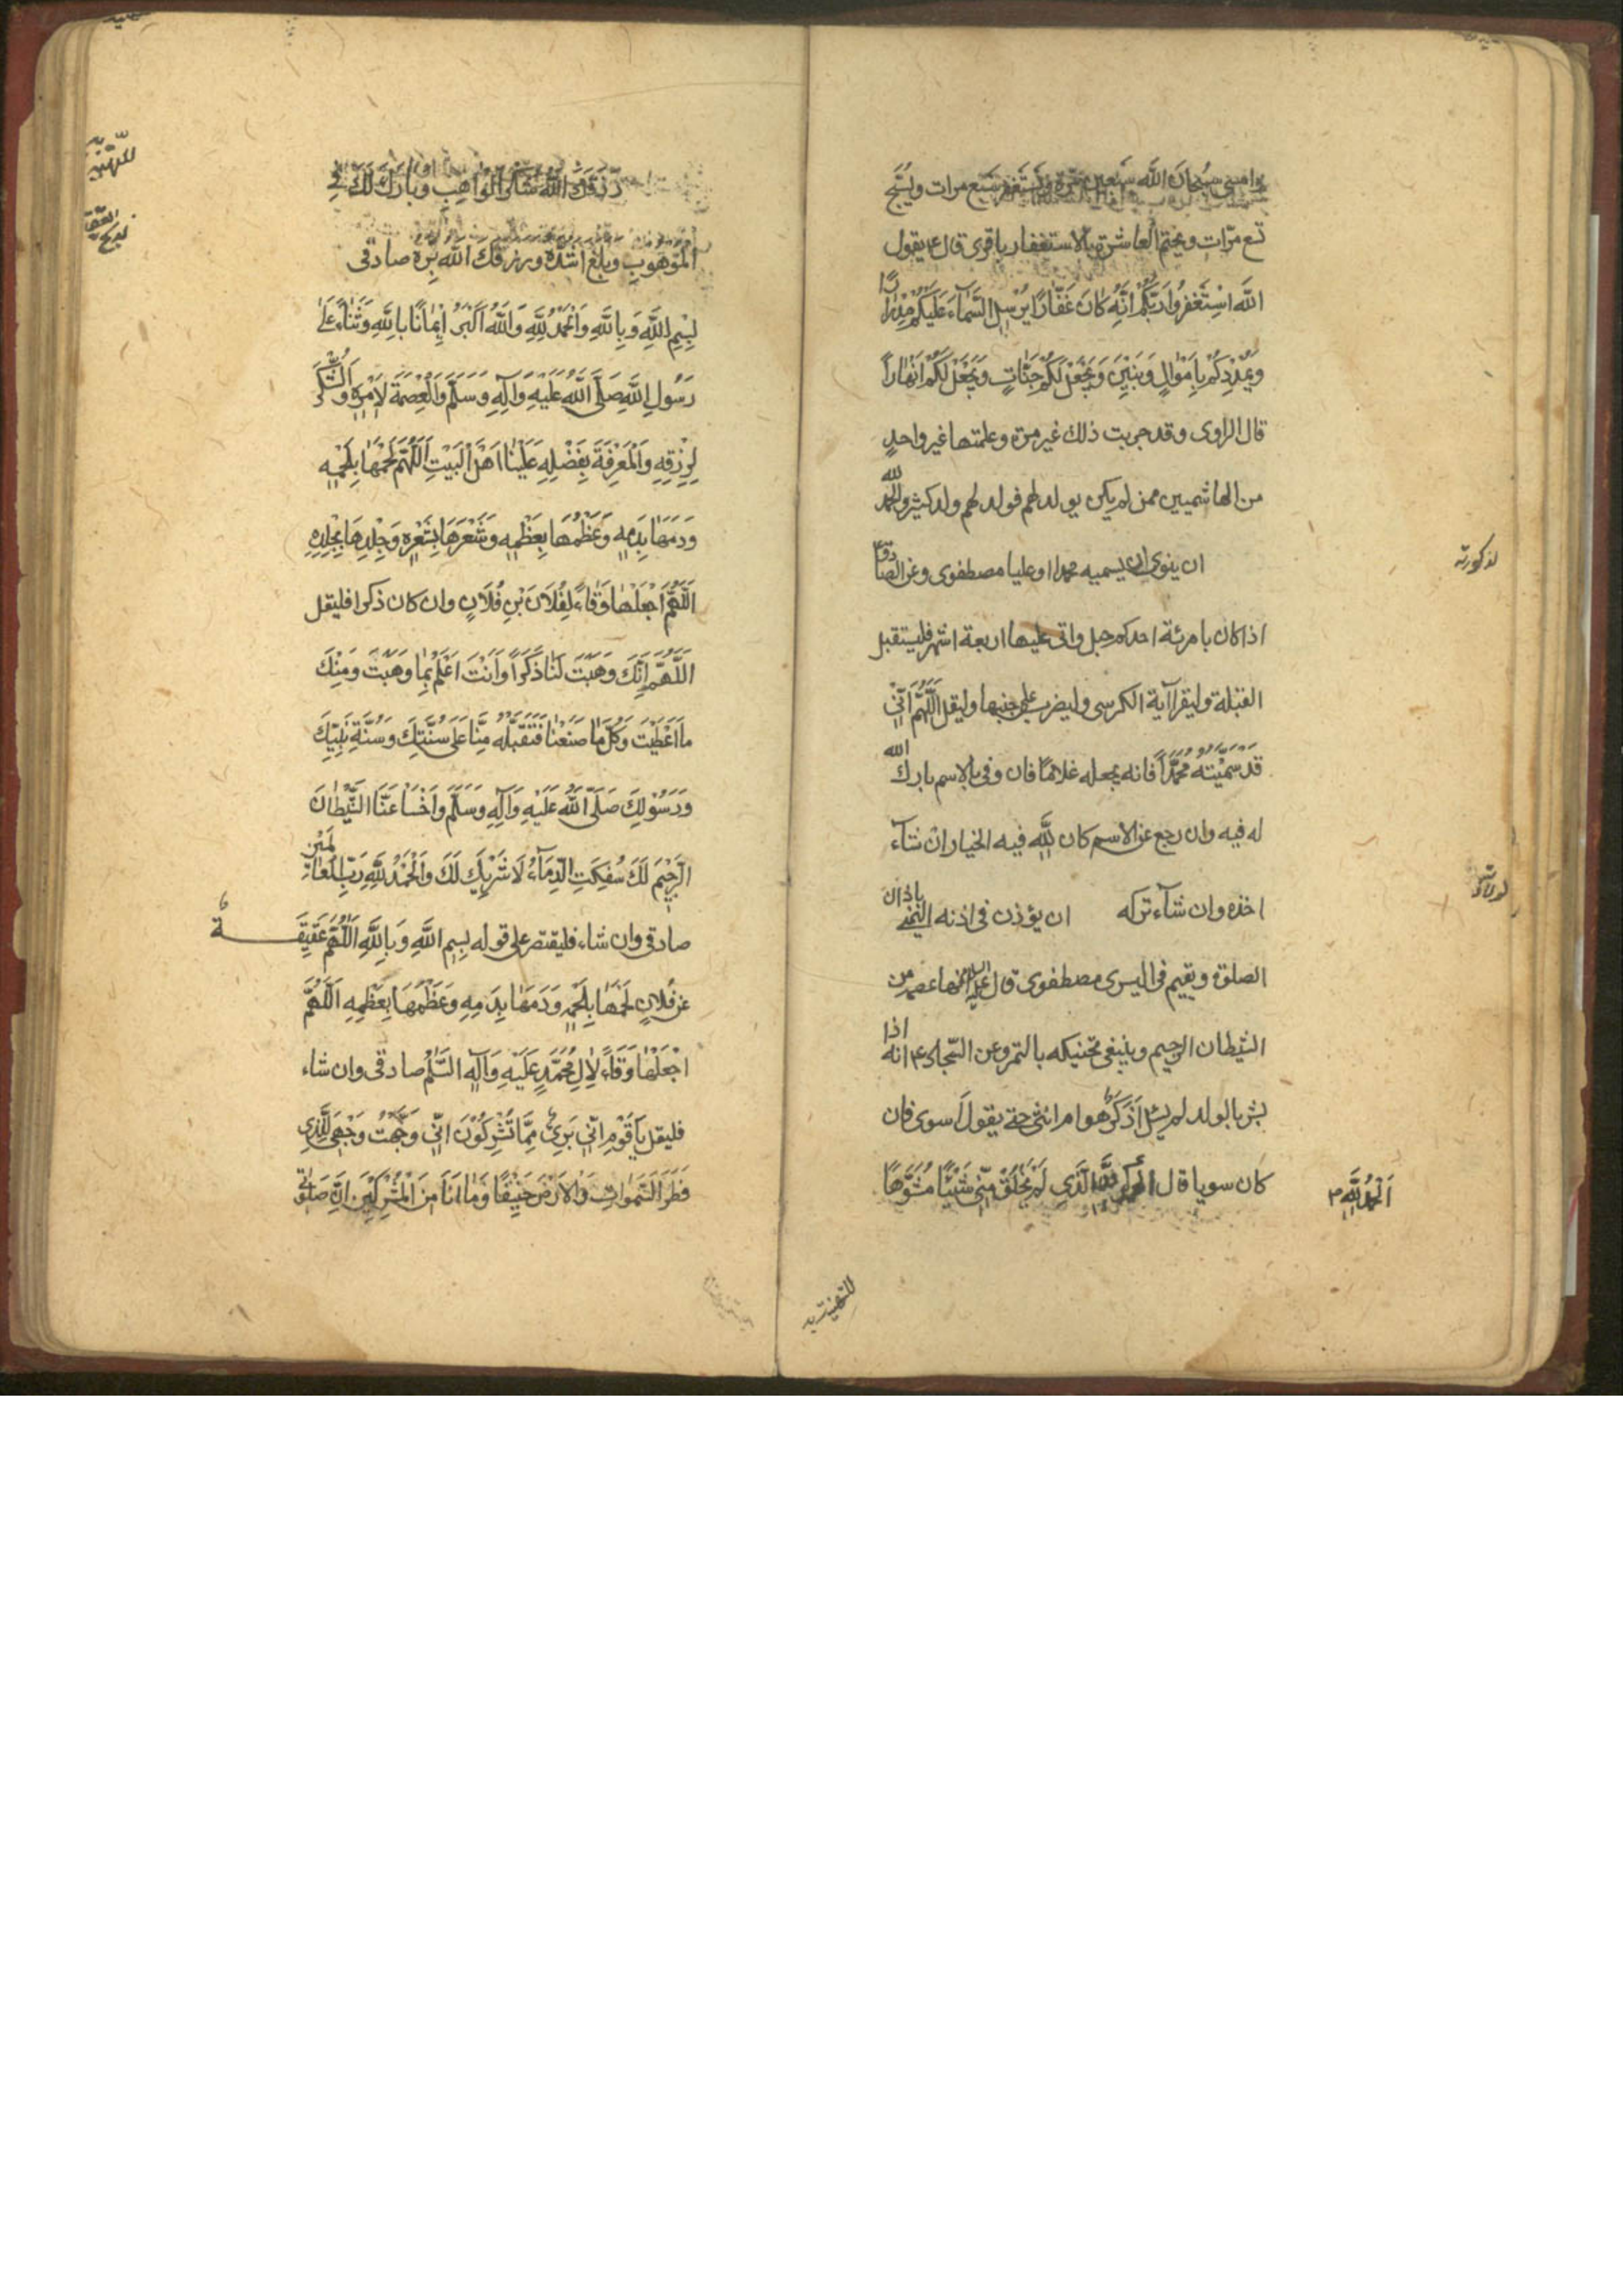 وامسى سُبْحَانَ اللّٰهِ سَبْعِينَ مَرَّة ويستغفر سبع مرات ويسبّح
تسع مرّات ويختم العاشرة بالاستغفار باقرى قال ع يقول
اللّٰه اسْتَغْفِرُوا رَبَّكُمْ اِنَّهُ كَانَ غَفَّارًا يُرْسِلِ السَّمَاءَ عَلَيْكُمْ مِدْرَارًا
وَيُمْدِدْكُمْ بِاَمْوَالٍ وَبَنِينَ وَيَجْعَلْ لَكُمْ جَنَّاتٍ وَيَجْعَلْ لَكُمْ اَنْهَاراً
قال الراوى وقد جربت ذلك غير مرّة وعلمتها غير واحدٍ
من الهاشميين ممن لم يكن يولد لهم فولد لهم ولد كثير والحمد لله
لذكورته
ان ينوى ان يسميه محمدا او عليا مصطفوى وعن الصادق ع
اذا كان بامرئة احدكم حبل واتى عليها اربعة اشهر فليستقبل
القبلة وليقرا آية الكرسى وليضرب على جنبها وليقل اَللّٰهُمَّ اِنّى
قَدْ سَمَّيْتُهُ مُحَمَّداً فانه يجعله غلاماً فان وفى بالاسم بارك الله
له فيه وان رجع عن الاسم كان لِلّٰهِ فيه الخيار ان شآء
اخذه وان شآء تركه ان يؤذن فى اذنه اليمنى باذان
لولادته
الصلوة ويقيم فى اليسرى مصطفوى قال عليه السلام انها عصمة من
الشيطان الرجيم وينبغى تحنيكه بالتمر وعن السّجاد ع انه اذا
بشر بالولد لم يسئل اَذَكَرٌ هو ام انثى حتى يقول اَسوى فان
كان سويا قال الحمد لله الَّذِى لَمْ يَخْلُقْ مِنّى شَيْئًا مُشَوَّهًا
اَلْحَمْدُ لِلّٰهِ
للتهنية
للتهنية
رَزَقَكَ اللّٰه شكر الْوَاهِبِ وَبَارَكَ لَكَ فِى
الْمَوْهُوبِ وبلغ اشدّه ورزقك اللّٰه بِرّه صادقى
لذبح العقيقة
بِسْمِ اللّٰهِ وَبِاللّٰهِ وَالْحَمْدُ لِلّٰهِ وَاللّٰهُ اَكْبَرُ اِيْمَانًا بِاللّٰهِ وَثَنَاءً عَلَى
رَسُولِ اللّٰهِ صَلَّى اللّٰهُ عَلَيْهِ وَآلِهِ وَسَلَّمَ وَالْعِصْمَةَ لِاَمْرِهِ وَالشُّكْرَ
لِرِزْقِهِ وَالْمَعْرِفَةَ بِفَضْلِهِ عَلَيْنَا اَهْلَ الْبَيْتِ اَللّٰهُمَّ لَحْمُهَا بِلَحْمِهِ
وَدَمُهَا بِدَمِهِ وَعَظْمُهَا بِعَظْمِهِ وَشَعْرُهَا بِشَعْرِهِ وَجِلْدُهَا بِجِلْدِهِ
اَللّٰهُمَّ اجْعَلْهَا وَقَاءً لِفُلَانِ بْنِ فُلَانٍ وان كان ذكرا فليقل
اَللّٰهُمَّ اِنَّكَ وَهَبْتَ لَنَا ذَكَراً وَاَنْتَ اَعْلَمُ بِمَا وَهَبْتَ وَمِنْكَ
مَا اَعْطَيْتَ وَكُلُّ مَا صَنَعْنَا فَتَقَبَّلْهُ مِنَّا عَلَى سُنَّتِكَ وَسُنَّةِ نَبِيِّكَ
وَرَسُولِكَ صَلَّى اللّٰهُ عَلَيْهِ وَآلِهِ وَسَلَّمَ وَاخْسَأْ عَنَّا الشَّيْطَانَ
الرَّجِيْمَ لَكَ سُفِكَتِ الدِّمَاءُ لَا شَرِيكَ لَكَ وَالْحَمْدُ لِلّٰهِ رَبِّ الْعَالَمِيْنَ
صادقى وان شاء فليقتصر على قوله بِسْمِ اللّٰهِ وَبِاللّٰهِ اَللّٰهُمَّ عَقِيقَةٌ
عَنْ فُلَانٍ لَحْمُهَا بِلَحْمِهِ وَدَمُهَا بِدَمِهِ وَعَظْمُهَا بِعَظْمِهِ اَللّٰهُمَّ
اجْعَلْهَا وَقَاءً لِآلِ مُحَمَّدٍ عَلَيْهِ وَآلِهِ السَّلٰمُ صادقى وان شاء
فليقل يَا قَوْمِ اِنّى بَرِىءٌ مِمَّا تُشْرِكُوْنَ اِنّى وَجَّهْتُ وَجْهِىَ لِلَّذِى
فَطَرَ السَّمٰوَاتِ وَالْاَرْضَ حَنِيفًا وَمَا اَنَا مِنَ الْمُشْرِكِيْنَ اِنَّ صَلوتى